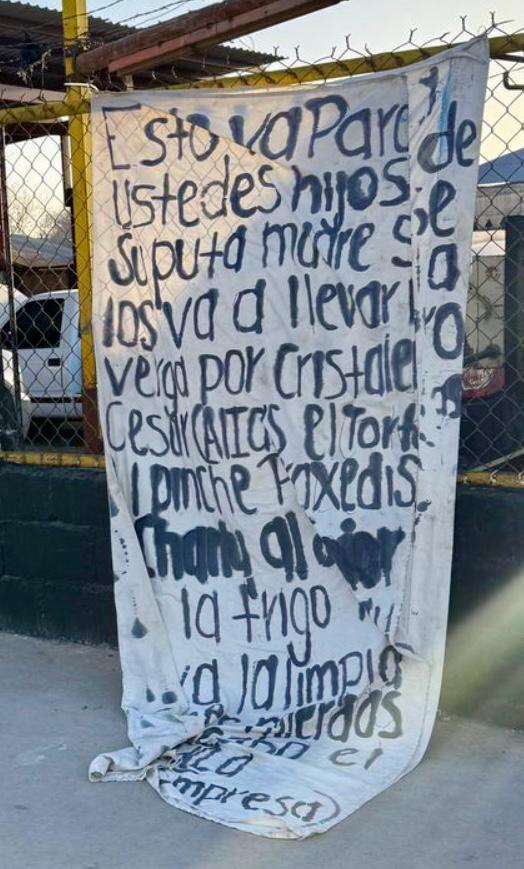 Esto va Para de
Ustedes hijos de
Su puta madre Se
los va a llevar la
verga por Cristalero
Cesar (ALIAS el Torti
pinche Praxedis
Charly al
la frigo
va la limpia
mierdas
el
empresa)